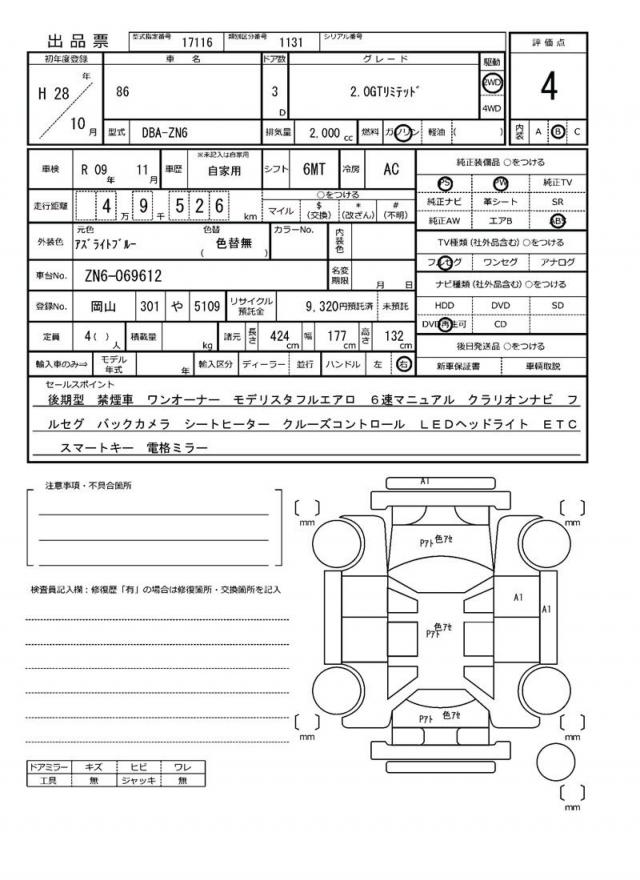 出品票 型式指定番号 17116 類別区分番号 1131 シリアル番号
初年度登録 車名 ドア数 グレード 駆動 評価点
H 28 年 10 月 86 3 D 2.0GTリミテッド 2WD 4WD 4
型式 DBA-ZN6 排気量 2,000 cc 燃料 ガソリン 軽油 ( ) 内装 A B C
車検 R 09 年 11 月 車歴 ※未記入は自家用 自家用 シフト 6MT 冷房 AC
走行距離 4 万 9 千 5 2 6 km ○をつける マイル $ (交換) * (改ざん) # (不明)
外装色 元色 アズライトブルー 色替 ( 色替無 ) カラーNo. 内装色
車台No. ZN6-069612 名変期限 月 日
登録No. 岡山 301 や 5109 リサイクル預託金 9,320円預託済 未預託
定員 4( ) 人 積載量 kg 諸元 長さ 424 cm 幅 177 cm 高さ 132 cm
輸入車のみ⇒ モデル年式 年 輸入区分 ディーラー 並行 ハンドル 左 右
純正装備品 ○をつける
PS PW 純正TV
純正ナビ 革シート SR
純正AW エアB ABS
TV種類 (社外品含む) ○をつける
フルセグ ワンセグ アナログ
ナビ種類 (社外品含む) ○をつける
HDD DVD SD
DVD再生可 CD
後日発送品 ○をつける
新車保証書 車輌取説
セールスポイント
後期型 禁煙車 ワンオーナー モデリスタフルエアロ 6速マニュアル クラリオンナビ フ
ルセグ バックカメラ シートヒーター クルーズコントロール LEDヘッドライト ETC
スマートキー 電格ミラー
注意事項・不具合箇所
検査員記入欄：修復歴「有」の場合は修復箇所・交換箇所を記入
ドアミラー キズ ヒビ ワレ
工具 無 ジャッキ 無
A1
mm
mm
Pアト 色アセ
A1
A1
色アセ
Pアト
Pアト 色アセ
mm
mm
mm